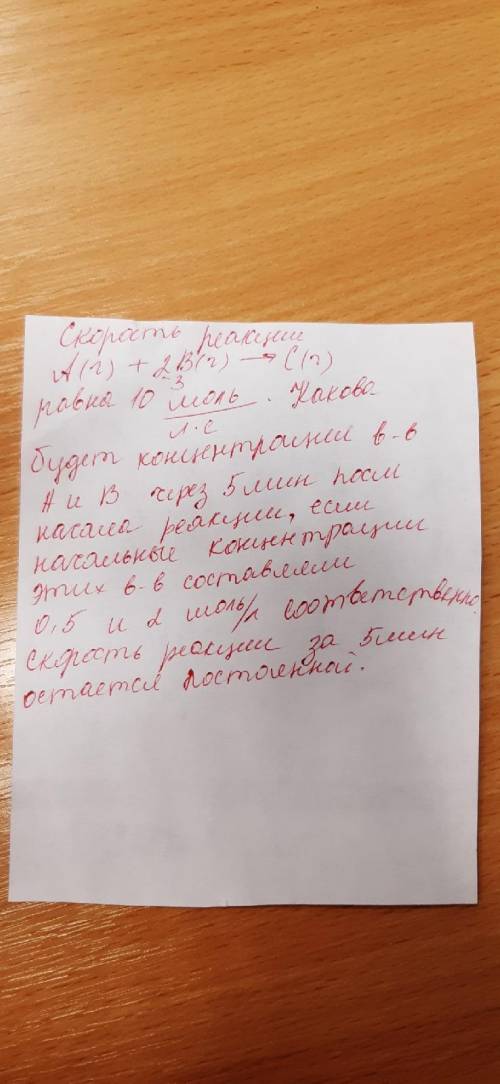 Скорость реакции
А(г) + 2В(г) → С(г)
равна 10⁻³ моль/л·с. Какова
будет концентрации в-в
А и В через 5 мин посл
начала реакции, если
начальные концентрации
этих в-в составляли
0,5 и 2 моль/л соответственно.
Скорость реакции за 5 мин
остается постоянной.